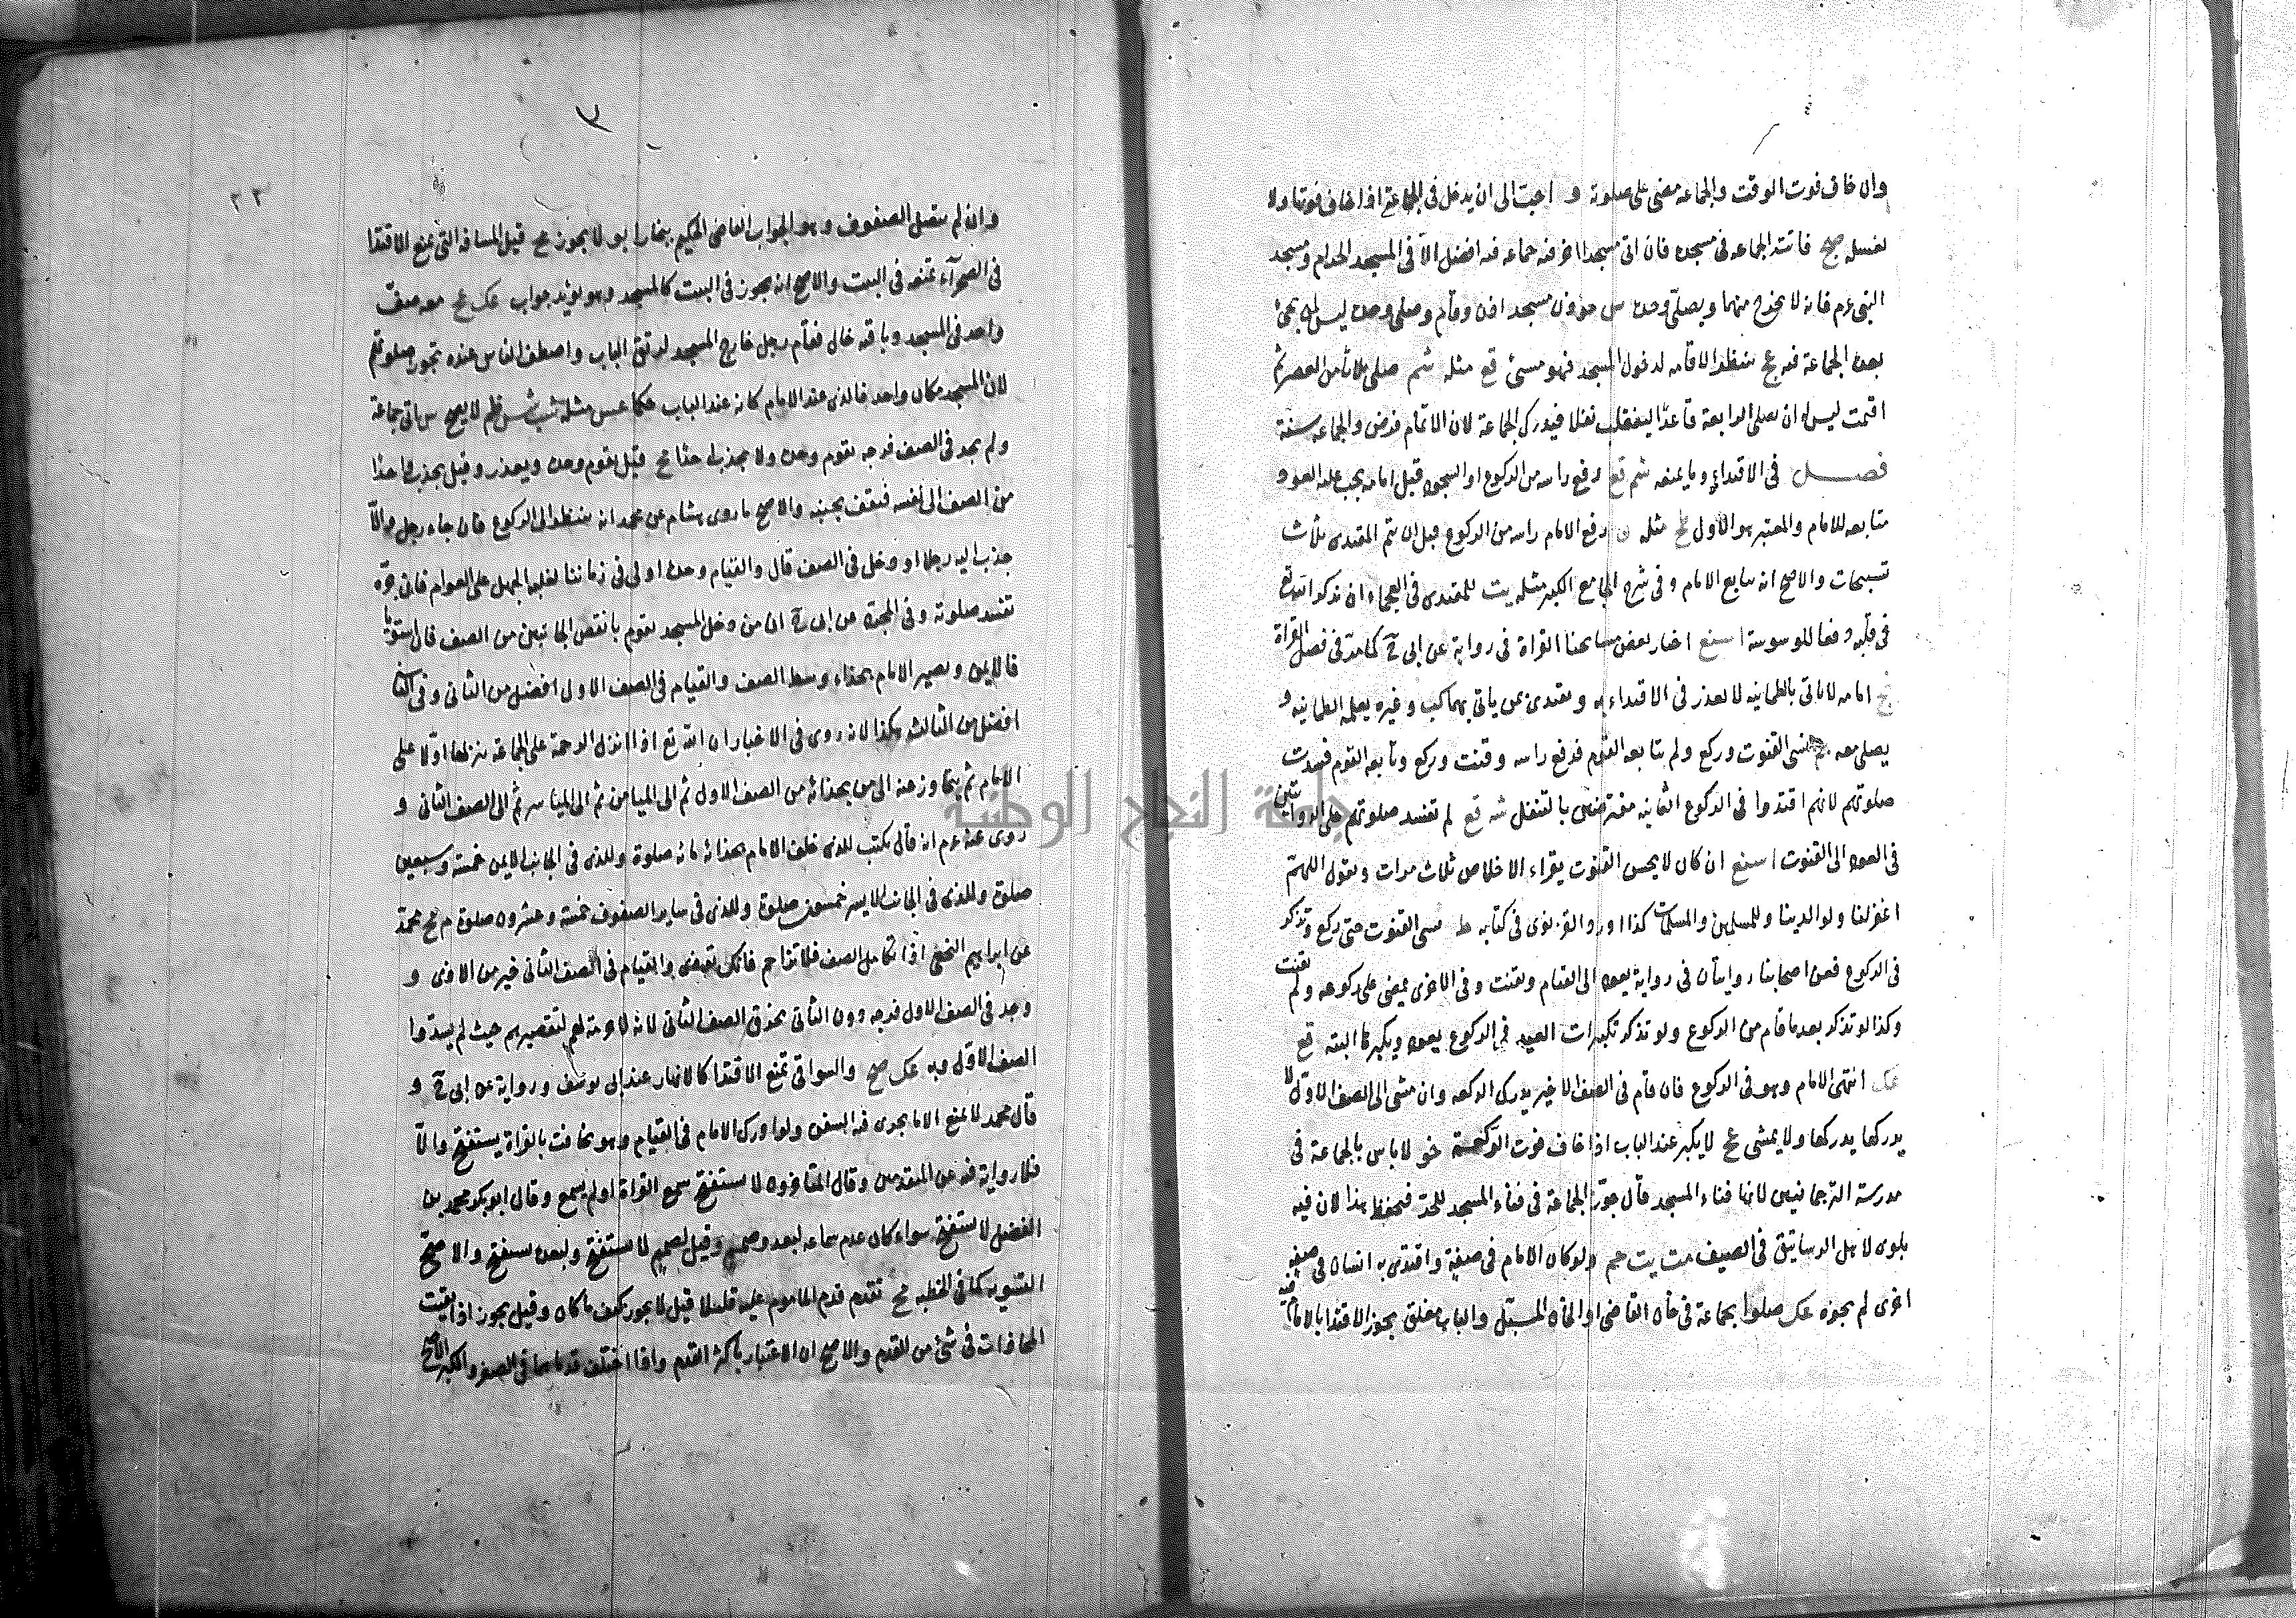 وان خاف فوت الوقت والجماعه مضى على صلوته و احبّ الى ان يدخل فى الجماعة اذا خاف فوتها ولا
لغسله صح فاتته الجماعه فى مسجده فان اتى مسجدا اخر فيه جماعه فيه افضل الا فى المسجد الحرام ومسجد
النبى عم فانه لا يخرج منهما ويصلى وحده س مؤذن مسجد اذن وقام وصلى وحده ليس لمن يجئ
بعده الجماعة فيه عج ينتظر الاقامه لدخول المسجد فهو مسئ قع مثله شم صلى ثلاثا من العصر ثم
اقيمت ليس له ان يصلى الرابعة قاعدا لينقلب نفلا فيدرك الجماعة لان الاتمام فرض والجماعه سنة
فصل فى الاقتداء وما يمنعه شم قع رفع راسه من الركوع او السجود قبل امامه يجب عليه العود و
متابعه للامام والمعتبر هو الاول مثله رفع الامام راسه من الركوع قبل ان يتم المقتدى ثلاث
تسبيحات والاصح انه يتابع الامام وفى شرح الجامع الكبير مثله يت للمقتدى فى العجماء ان يذكر الله تع
فى قلبه دفعا للوسوسة اختار بعض مشايخنا القراة فى رواية عن ابى ح كما مر فى فصل القراة
امامه لا ياتى بالطمانينه لا يعذر فى الاقتداء به ويقتدى بمن ياتى بها كب وغيره يعلمه الطمانينه و
يصلى معه نسى القنوت وركع ولم يتابعه القوم فرفع راسه وقنت وركع وتابعه القوم فسدت
صلوتهم لانهم اقتدوا فى الركوع الثانيه مفترضين بالمتنفل شه قع لم تفسد صلوتهم على الروايتين
فى العود الى القنوت ان كان لا يحسن القنوت يقراء الاخلاص ثلاث مرات ويقول اللهم
اغفر لنا ولوالدينا وللمسلمين والمسلمات كذا اورد الغزنوى فى كتابه ط نسى القنوت حتى ركع وتذكر
فى الركوع فعن اصحابنا روايتان فى رواية يعود الى القيام ويقنت وفى الاخرى يمضى على ركوعه ولم يقنت
وكذا لو تذكر بعد ما قام من الركوع ولو تذكر تكبيرات العيد فى الركوع يعود ويكبرها البته قع
عك انتهى الامام وهو فى الركوع فان قام فى الصف الاخير يدرك الركعه وان مشى الى الصف الاول لا
يدركها يدركها ولا يمشى عج لا يكبر عند الباب اذا خاف فوت الركعة خو لا باس بالجماعة فى
مدرسة الترجمانيين لانها فناء المسجد قال جوز الجماعة فى فناء المسجد للحر فيحفظ هذا لان فيه
بلوى لاهل الرساتيق فى الصيف مت يت حم ولو كان الامام فى صفة واقتدى به انسان فى صفة
اخرى لم يجزه عك صلوا بجماعة فى خان القاضى او الخان المسبّل والباب مغلق يجوز الاقتدا بالامام فيه
٣
٢٣
وان لم يتصل الصفوف وهو الجواب القاضى الحكيم بخارا بو لا يجوز عج قيل المسافه التى تمنع الاقتدا
فى الصحرآء تمنعه فى البيت والاصح انه يجوز فى البيت كالمسجد وهو يؤيد جواب عك عج معه صفّ
واحد فى المسجد وباقيه خال فقام رجل خارج المسجد لدى الباب واصطف الناس عنده تجوز صلوتهم
لان المسجد مكان واحد فالذى عند الامام كانه عند الباب عكا عس مثله شب شس ظم لا يصح س اتى جماعة
ولم يجد فى الصف فرجه يقوم وحده ولا يجذب احدا مح قيل يقوم وحده ويعذر وقيل يجذب واحدا
من الصف الى نفسه فيقف بجنبه والاصح ما روى هشام عن محمد انه ينتظر الى الركوع فان جاء رجل والاّ
جذب اليه رجلا او دخل فى الصف قال والقيام وحده اولى فى زماننا لغلبة الجهل على العوام فاذا جرّه
تفسد صلوته وفى المجرد عن ابى ح ان من دخل المسجد يقوم بانقص الجانبين من الصف فان استويا
فالايمن ويصير الامام بحذاء وسط الصف والقيام فى الصف الاول افضل من الثانى وفى الثانى
افضل من الثالث هكذا لانه روى فى الاخبار ان الله تع اذا انزل الرحمة على الجماعة ينزلها اولا على
الامام ثم يتجاوز عنه الى من بحذائه من الصف الاول ثم الى الميامن ثم الى المياسر ثم الى الصف الثانى و
روى عنه عم انه قال يكتب للذى خلف الامام بحذائه مائة صلوة وللذى فى الجانب الايمن خمسة وسبعين
صلوة وللذى فى الجانب الايسر خمسون صلوة وللذى فى ساير الصفوف خمسة وعشرون صلوة م مح محمد
عن ابراهيم النخعى اذا تكامل الصف فلا تزاحم فانك تؤذى والقيام فى الصف الثانى خير من الاذى و
وجد فى الصف الاول فرجه دون الثانى يخرق الصف الثانى لانه لا حرمة لهم لتقصيرهم حيث لم يسدّوا
الصف الاول وبه عك صح والسواقى تمنع الاقتدا كالانهار عند ابى يوسف ورواية عن ابى ح و
قال محمد لا تمنع الا ما يجرى فيه السفن ولو ادرك الامام فى القيام وهو يخافت بالقراة يستفتح والاّ
فلا رواية فيه عن المتقدمين وقال المتاخرون لا يستفتح سمع القراة او لم يسمع وقال ابو بكر محمد بن
الفضل لا يستفتح سواء كان عدم سماعه لبعد وصمم وقيل لصمم لا يستفتح ولبعده يستفتح والاصح
التسويه كما فى الخطبه مح تقدم قدم الماموم عليه قليلا قيل لا يجوز كيف ما كان وقيل يجوز اذا بقيت
المحاذات فى شئ من القدم والاصح ان الاعتبار باكثر القدم واذا اختلف قدماهما فى الصغر والكبر الاصح
جامعة النجاح الوطنية